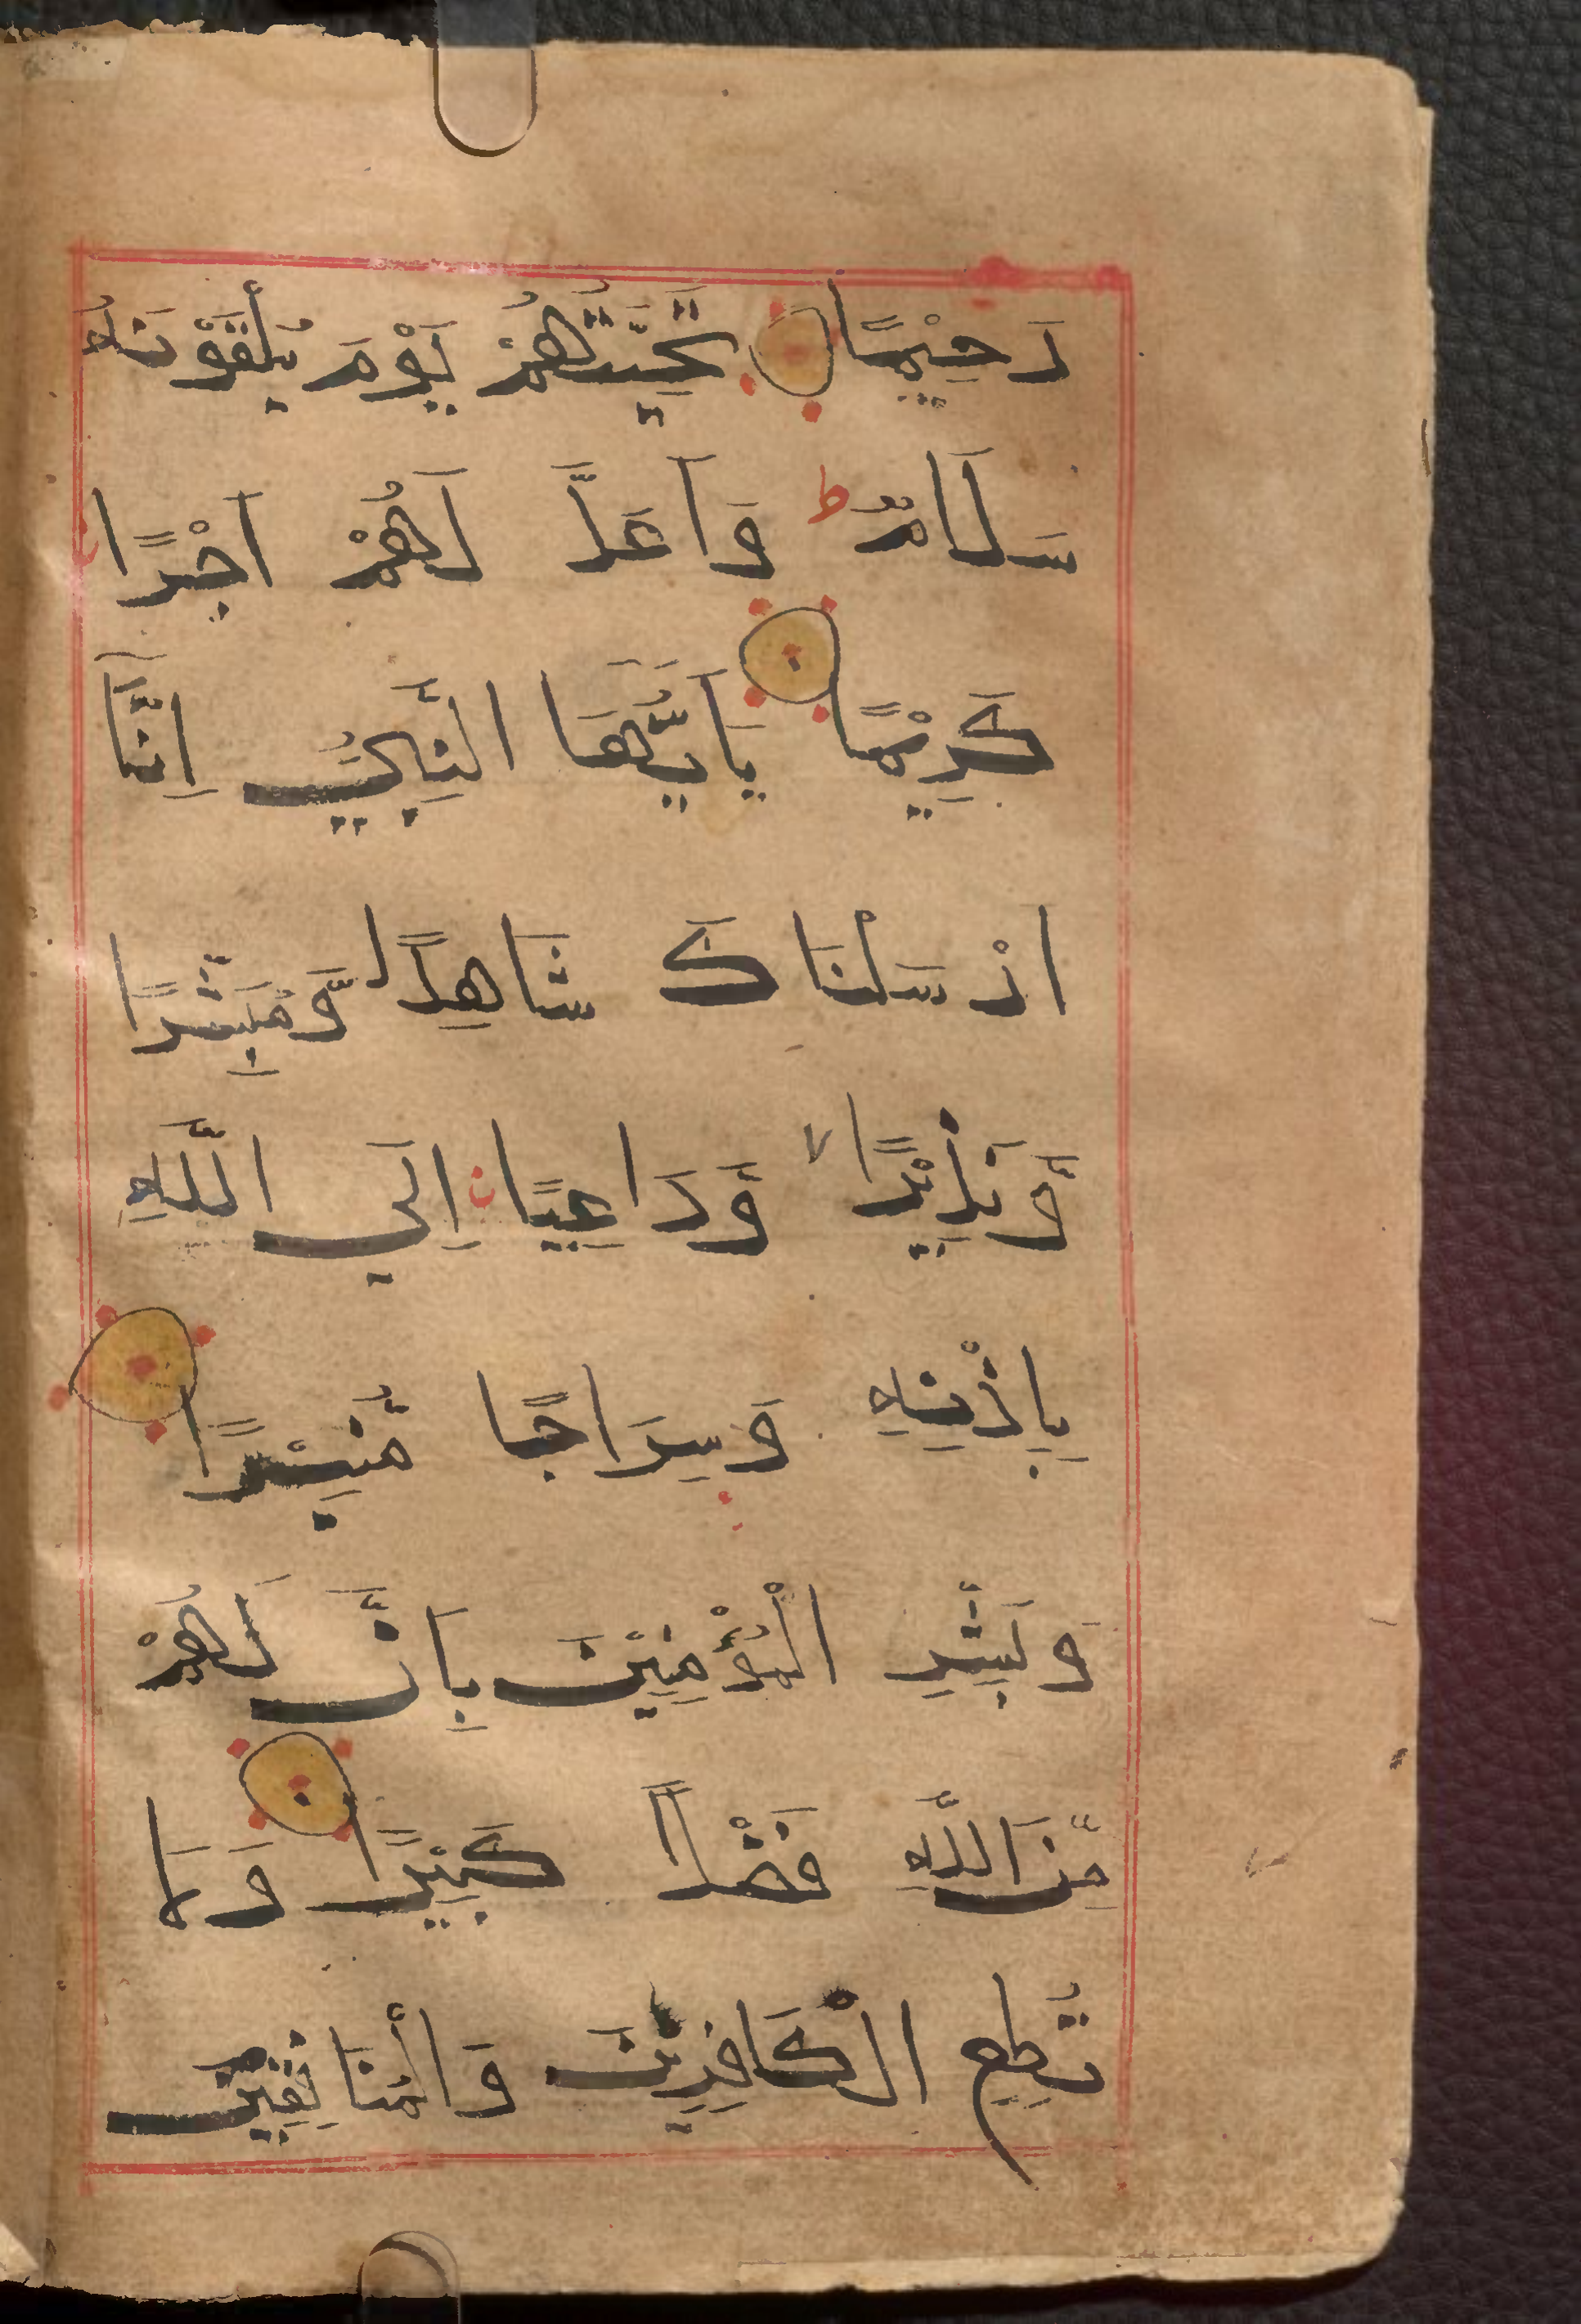 رَحِيْمًا تَحِيَّتُهُمْ يَوْمَ يَلْقَوْنَهُ
سَلَامٌ ط وَاَعَدَّ لَهُمْ اَجْرًا
كَرِيْمًا يَاَيُّهَا النَّبِيُّ اِنَّا
اَرْسَلْنَاكَ شَاهِدًا وَّمُبَشِّرًا
وَّنَذِيْرًا لا وَّدَاعِيًا اِلَي اللَّهِ
بِاِذْنِهِ وَسِرَاجًا مُّنِيْرًا
وَبَشِّرِ الْمُؤْمِنِيْنَ بِاَنَّ لَهُمْ
مِّنَ اللَّهِ فَضْلًا كَبِيْرًا وَلَا
تُطِعِ الْكَافِرِيْنَ وَالْمُنَافِقِيْنَ